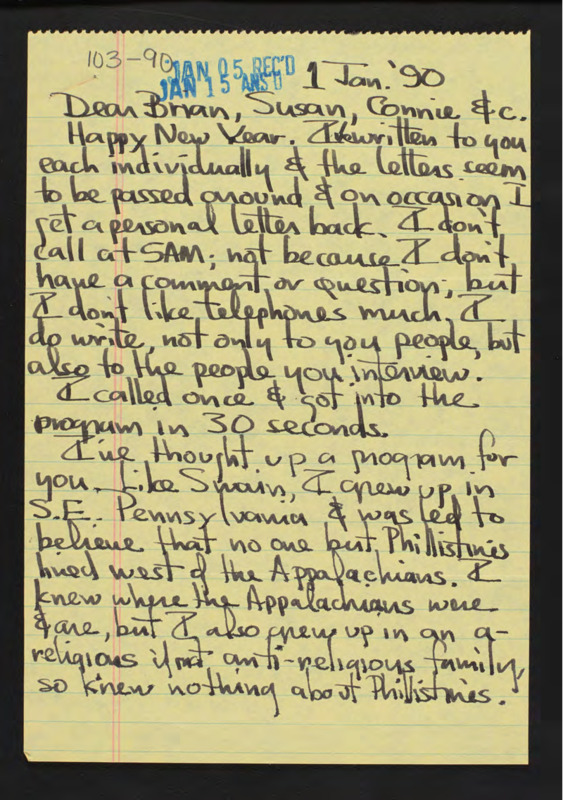 103-90
JAN 05 REC'D
JAN 15 ANS'D
1 Jan. '90
Dear Brian, Susan, Connie & c.
Happy New Year. I've written to you
each individually & the letters seem
to be passed around & on occasion I
get a personal letter back. I don't
call at 5AM; not because I don't
have a comment or question; but
I don't like telephones much. I
do write, not only to you people, but
also to the people you interview.
I called once & got into the
program in 30 seconds.
I've thought up a program for
you. Like Swain, I grew up in
S.E. Pennsylvania & was led to
believe that no one but Phillistines
lived west of the Appalachians. I
knew where the Appalachians were
& are, but I also grew up in an a-
religious if not anti-religious family,
so knew nothing about Phillistines.